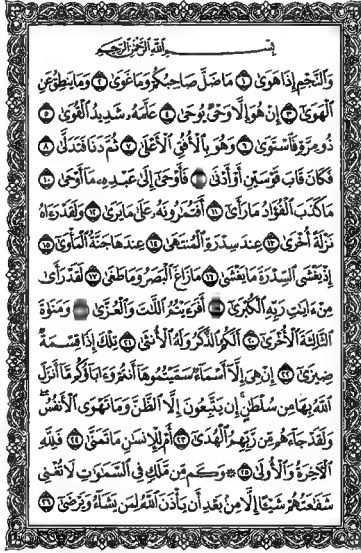 بِسْمِ ٱللَّهِ ٱلرَّحْمَٰنِ ٱلرَّحِيمِ
وَٱلنَّجْمِ إِذَا هَوَىٰ ١ مَا ضَلَّ صَاحِبُكُمْ وَمَا غَوَىٰ ٢ وَمَا يَنطِقُ عَنِ
ٱلْهَوَىٰ ٣ إِنْ هُوَ إِلَّا وَحْىٌ يُوحَىٰ ٤ عَلَّمَهُۥ شَدِيدُ ٱلْقُوَىٰ ٥
ذُو مِرَّةٍ فَٱسْتَوَىٰ ٦ وَهُوَ بِٱلْأُفُقِ ٱلْأَعْلَىٰ ٧ ثُمَّ دَنَا فَتَدَلَّىٰ ٨
فَكَانَ قَابَ قَوْسَيْنِ أَوْ أَدْنَىٰ فَأَوْحَىٰٓ إِلَىٰ عَبْدِهِۦ مَآ أَوْحَىٰ ١٠
مَا كَذَبَ ٱلْفُؤَادُ مَا رَأَىٰٓ ١١ أَفَتُمَٰرُونَهُۥ عَلَىٰ مَا يَرَىٰ ١٢ وَلَقَدْ رَءَاهُ
نَزْلَةً أُخْرَىٰ ١٣ عِندَ سِدْرَةِ ٱلْمُنتَهَىٰ ١٤ عِندَهَا جَنَّةُ ٱلْمَأْوَىٰٓ ١٥
إِذْ يَغْشَى ٱلسِّدْرَةَ مَا يَغْشَىٰ ١٦ مَا زَاغَ ٱلْبَصَرُ وَمَا طَغَىٰ ١٧ لَقَدْ رَأَىٰ
مِنْ ءَايَٰتِ رَبِّهِ ٱلْكُبْرَىٰٓ أَفَرَءَيْتُمُ ٱللَّٰتَ وَٱلْعُزَّىٰ وَمَنَوٰةَ
ٱلثَّالِثَةَ ٱلْأُخْرَىٰٓ ٢٠ أَلَكُمُ ٱلذَّكَرُ وَلَهُ ٱلْأُنثَىٰ ٢١ تِلْكَ إِذًا قِسْمَةٌ
ضِيزَىٰٓ ٢٢ إِنْ هِىَ إِلَّآ أَسْمَآءٌ سَمَّيْتُمُوهَآ أَنتُمْ وَءَابَآؤُكُم مَّآ أَنزَلَ
ٱللَّهُ بِهَا مِن سُلْطَٰنٍ إِن يَتَّبِعُونَ إِلَّا ٱلظَّنَّ وَمَا تَهْوَى ٱلْأَنفُسُ
وَلَقَدْ جَآءَهُم مِّن رَّبِّهِمُ ٱلْهُدَىٰٓ ٢٣ أَمْ لِلْإِنسَٰنِ مَا تَمَنَّىٰ ٢٤ فَلِلَّهِ
ٱلْءَاخِرَةُ وَٱلْأُولَىٰ ٢٥ ۞ وَكَم مِّن مَّلَكٍ فِى ٱلسَّمَٰوَٰتِ لَا تُغْنِى
شَفَٰعَتُهُمْ شَيْـًٔا إِلَّا مِنۢ بَعْدِ أَن يَأْذَنَ ٱللَّهُ لِمَن يَشَآءُ وَيَرْضَىٰٓ ٢٦